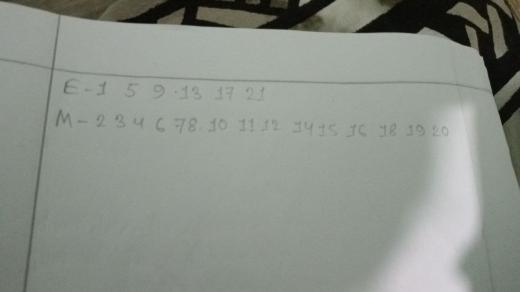 E-1 5 9 13 17 21
M-2 3 4 6 7 8 10 11 12 14 15 16 18 19 20